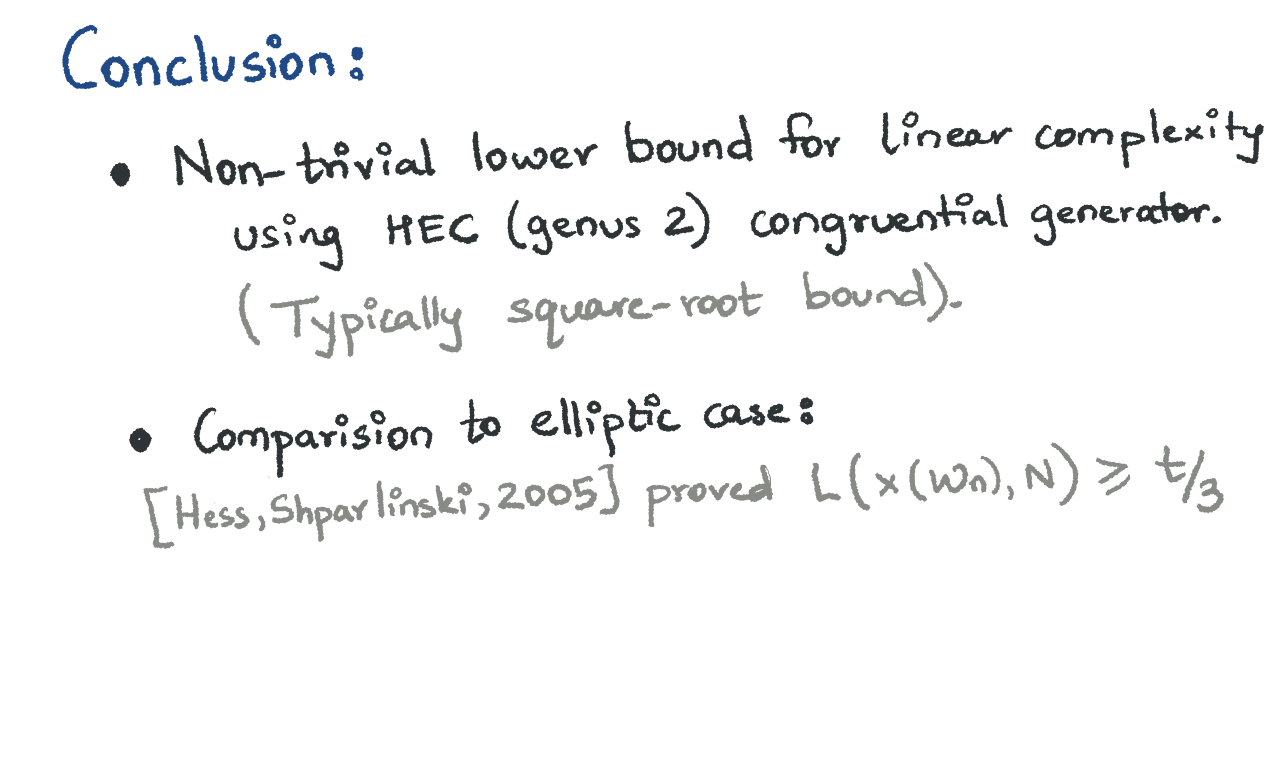 Conclusion:
• Non-trivial lower bound for linear complexity
using HEC (genus 2) congruential generator.
(Typically square-root bound).
• Comparision to elliptic case:
[Hess, Shparlinski, 2005] proved L(x(Wn), N) ⩾ t/3